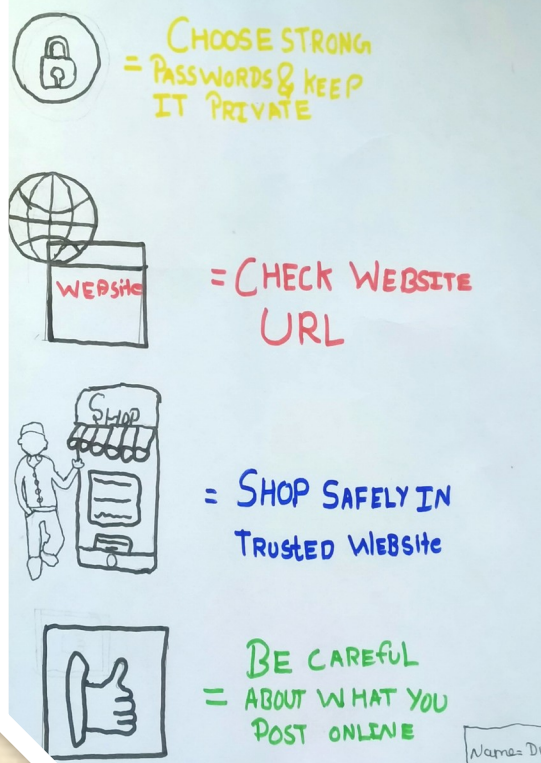 CHOOSE STRONG
= PASSWORDS & KEEP
IT PRIVATE
WEBSite
= CHECK WEBSITE
URL
SHOP
= SHOP SAFELY IN
TRUSTED WEBSite
BE CAREFUL
= ABOUT WHAT YOU
POST ONLINE
Name=